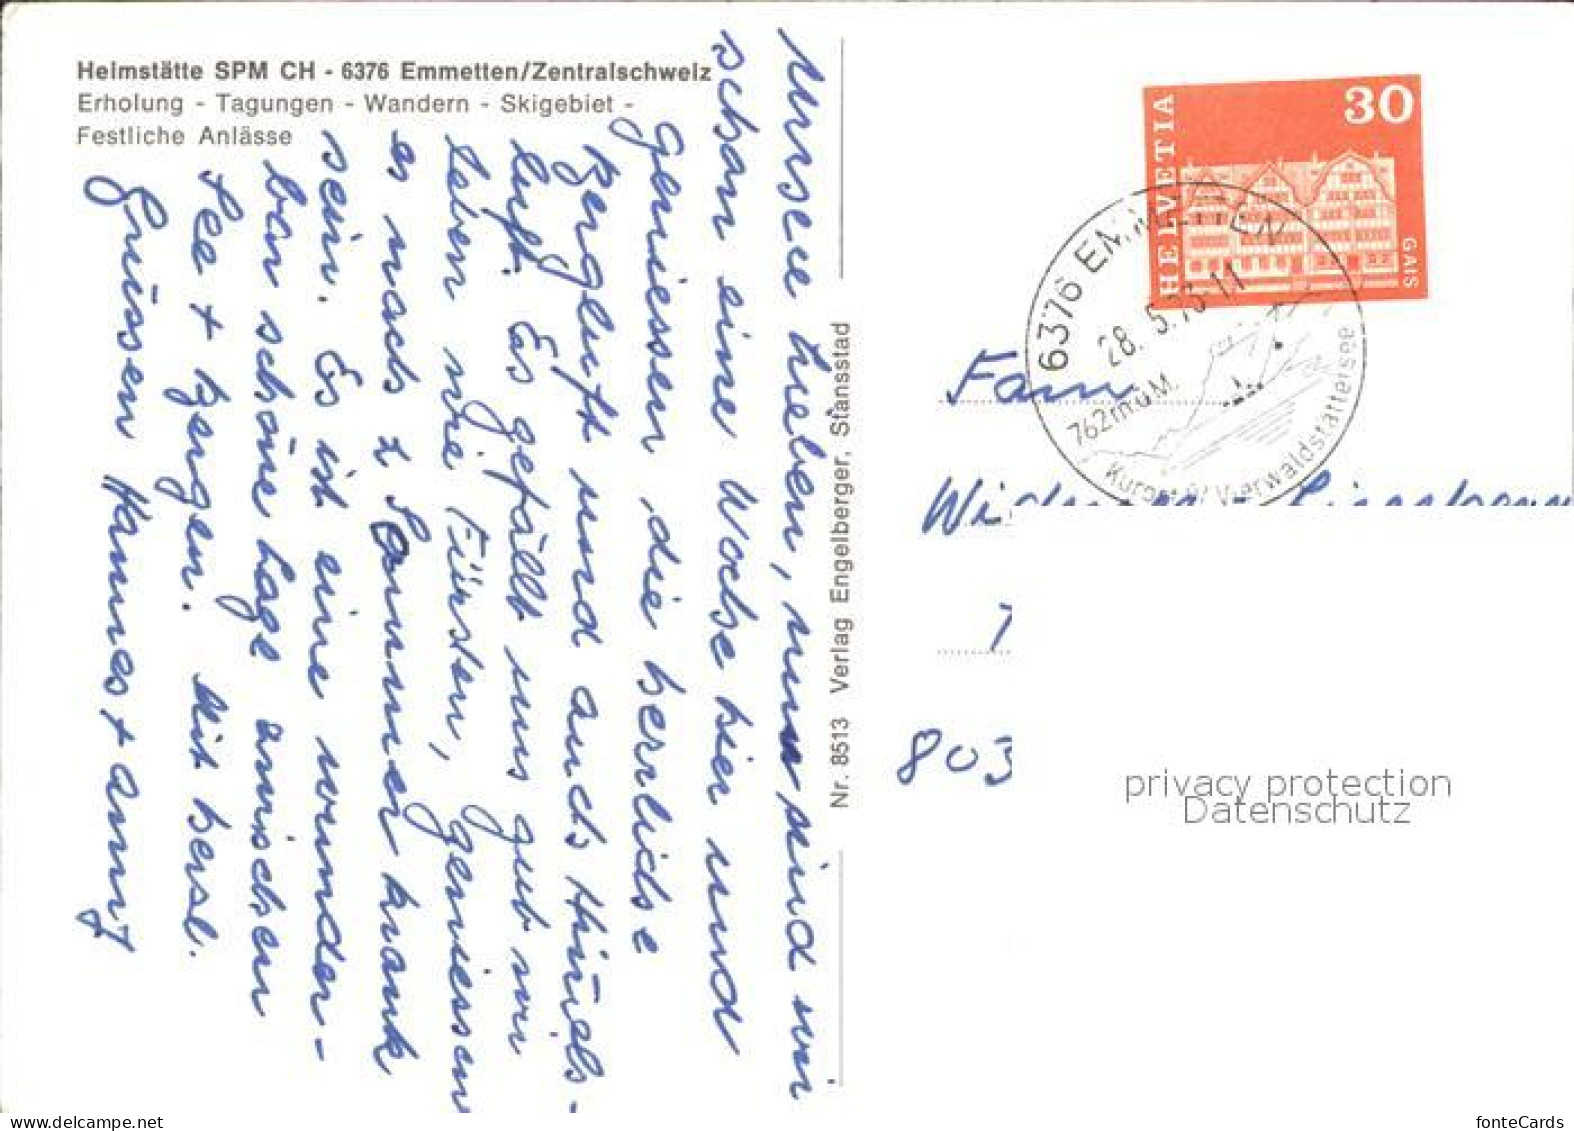 Heimstätte SPM CH - 6376 Emmetten/Zentralschweiz
Erholung - Tagungen - Wandern - Skigebiet -
Festliche Anlässe
Unsere Lieben, nun sind wir
schon eine Woche hier und
geniessen die herrliche
Bergluft und auch
luft. Es gefällt uns gut wir
leben wie Fürsten, geniessen
es nach
Sommer krank
sein. Es ist eine wunder-
bar schöne Lage zwischen
See + Bergen. Mit herzl.
Grüssen Hannes +
Nr. 8513 Verlag Engelberger, Stansstad
HELVETIA
30
GAIS
6376 EMMETTEN
28. 5.73-11
762müM.
Kurort a/Vierwaldstättersee
Fam
803
privacy protection
Datenschutz
www.delcampe.net
fonteCards